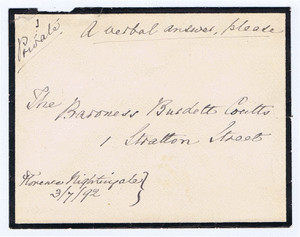 Private
A verbal answer, please
The
Baroness Burdett Coutts
1 Stratton Street
Florence Nightingale
3/7/92